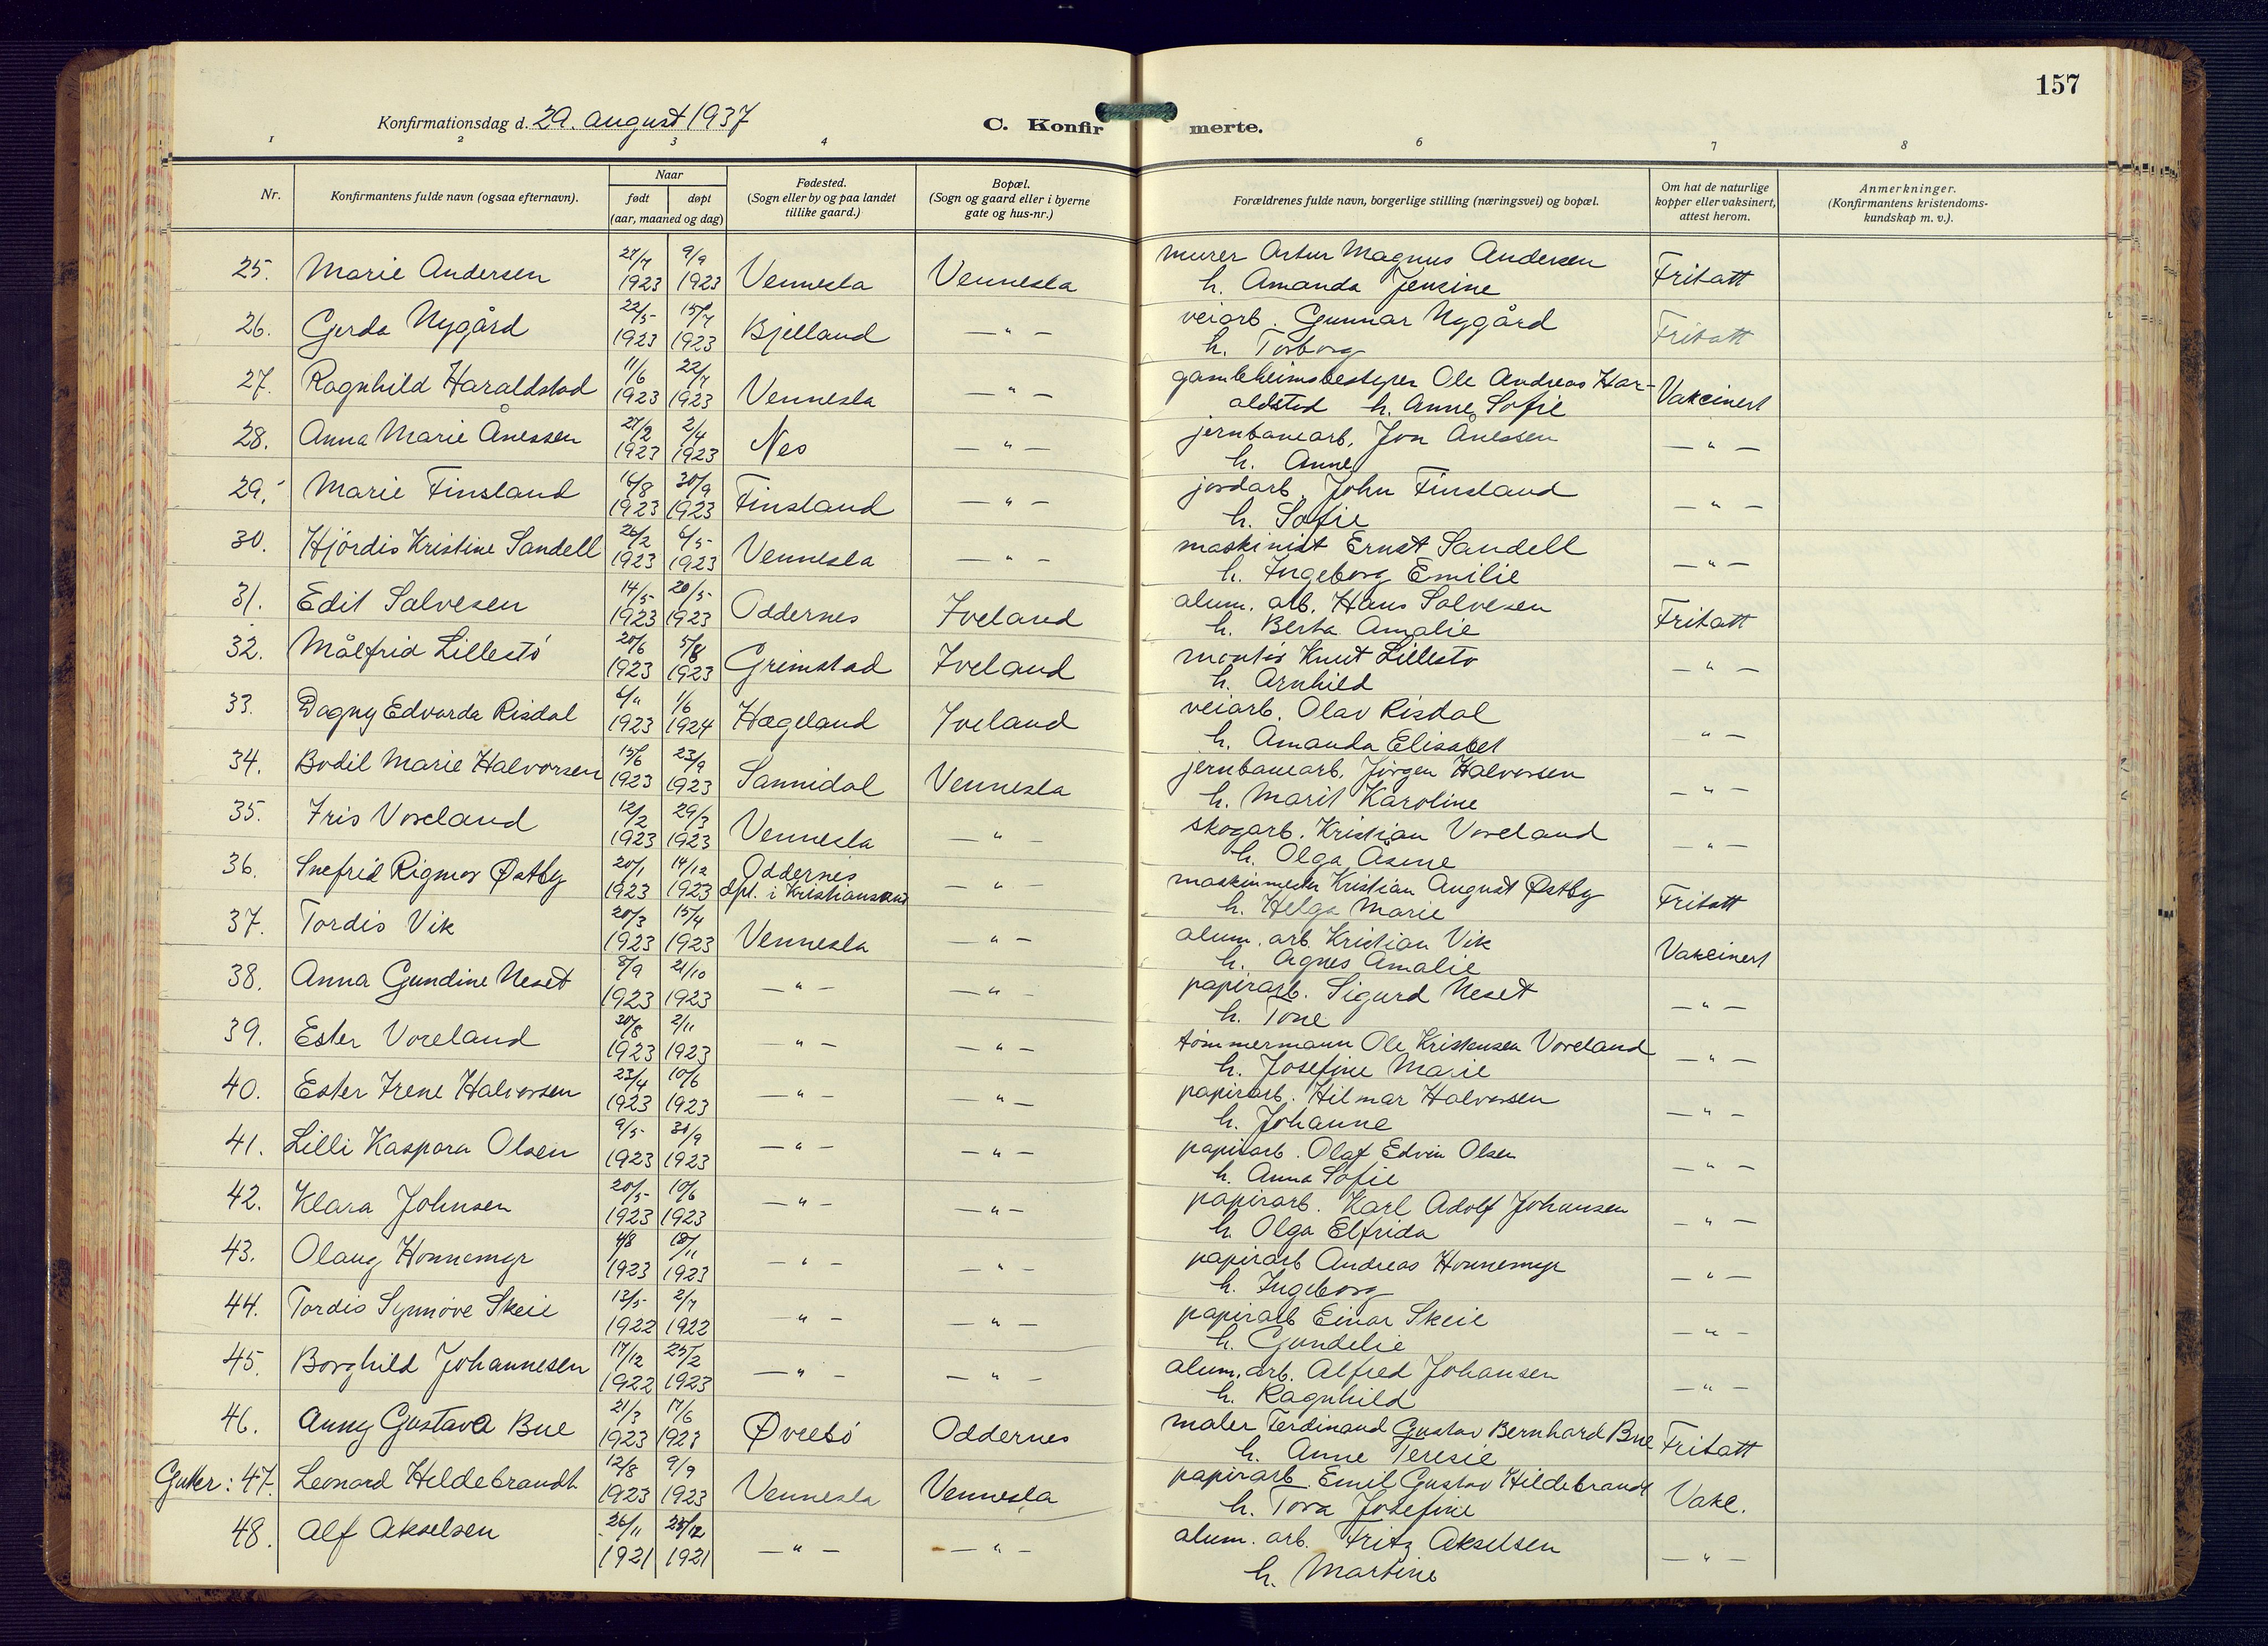 157
Konfirmationsdag d. 29. august 1937
C. Konfirmerte.
1 2 3 4 6 7 8
Nr. Konfirmantens fulde navn (ogsaa efternavn). Naar født døpt (aar, maaned og dag) Fødested. (Sogn eller by og paa landet tillike gaard.) Bopæl. (Sogn og gaard eller i byerne gate og hus-nr.) Forældrenes fulde navn, borgerlige stilling (næringsvei) og bopæl. Om hat de naturlige kopper eller vaksinert, attest herom. Anmerkninger. (Konfirmantens kristendoms-kundskap m. v.).
25. Marie Andersen 27/7 1923 9/9 1923 Vennesla Vennesla murer Artur Magnus Andersen
h. Amanda Jensine Fritatt
26. Gerda Nygård 22/5 1923 15/7 1923 Bjelland —"— veiarb. Gunnar Nygård
h. Torborg Fritatt
27. Ragnhild Haraldstad 11/6 1923 22/7 1923 Vennesla —"— gamleheimsbestyrer Ole Andreas Har-
aldstad h. Anne Sofie Vakcinert
28. Anna Marie Ånessen 27/2 1923 2/4 1923 Nes —"— jernbanearb. Jon Ånessen
h. Anne —"—
29. Marie Finsland 16/8 1923 30/9 1923 Finsland —"— jordarb. John Finsland
h. Sofie —"—
30. Hjördis Kristine Sandell 26/2 1923 6/5 1923 Vennesla —"— maskinist Ernst Sandell
h. Ingeborg Emilie —"—
31. Edit Salvesen 14/5 1923 20/5 1923 Oddernes Iveland alum. arb. Hans Salvesen
h. Berta Amalie Fritatt
32. Målfrid Lillestö 20/6 1923 5/8 1923 Grimstad Iveland montör Knut Lillestö
h. Arnhild —"—
33. Dagny Edvarda Risdal 1923 1/6 1924 Hægeland Iveland veiarb. Olav Risdal
h. Amanda Elisabet —"—
34. Bodil Marie Halvorsen 15/6 1923 23/9 1923 Sannidal Vennesla jernbanearb. Jörgen Halvorsen
h. Marit Karoline —"—
35. Iris Voreland 12/2 1923 29/3 1923 Vennesla —"— skogarb. Kristian Voreland
h. Olga Åsine —"—
36. Snefrid Rigmor Østby 20/1 1923 14/12 1923 Oddernes
dpt. i Kristiansand —"— maskinmester Kristian August Østby
h. Helga Marie Fritatt
37. Tordis Vik 20/3 1923 15/4 1923 Vennesla —"— alum. arb. Kristian Vik
h. Agnes Amalie Vakcinert
38. Anna Gundine Neset 8/9 1923 21/10 1923 —"— —"— papirarb. Sigurd Neset
h. Tone —"—
39. Ester Voreland 30/8 1923 2/11 1923 —"— —"— tömmermann Ole Kristensen Voreland
h. Josefine Marie —"—
40. Ester Irene Halvorsen 23/4 1923 10/6 1923 —"— —"— papirarb. Hilmar Halvorsen
h. Johanne —"—
41. Lilli Kaspara Olsen 9/5 1923 1923 —"— —"— papirarb. Olaf Edvin Olsen
h. Anna Sofie —"—
42. Klara Johnsen 20/5 1923 10/6 1923 —"— —"— papirarb. Karl Adolf Johansen
h. Olga Elfrida —"—
43. Olaug Honnemyr 4/8 1923 18/11 1923 —"— —"— papirarb Andreas Honnemyr
h. Ingeborg —"—
44. Tordis Synnöve Skeie 13/5 1922 2/7 1922 —"— —"— papirarb Einar Skeie
h. Gundelie —"—
45. Borghild Johannesen 17/12 1922 25/2 1923 —"— —"— alum. arb. Alfred Johansen
h. Ragnhild —"—
46. Anny Gustava Bue 21/3 1923 17/6 1923 Øvrebö Oddernes maler Ferdinand Gustav Bernhard Bue
h. Anne Teresie Fritatt
Gutter: 47. Leonard Hildebrandt 12/8 1923 9/9 1923 Vennesla Vennesla papirarb. Emil Gustav Hildebrandt
h. Tora Josefine Vakc.
48. Alf Akselsen 26/11 1921 1921 —"— —"— alum. arb. Fritz Akselsen
h. Martine —"—